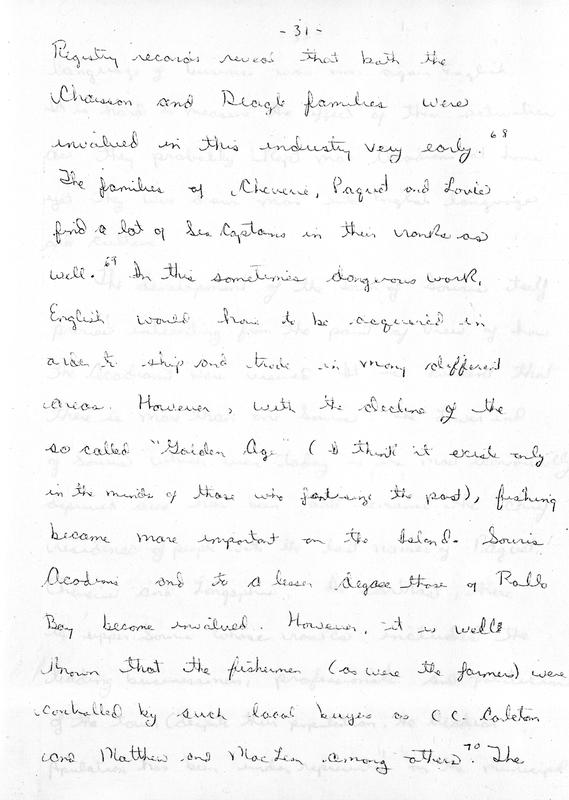 - 31 -
Registry records reveal that both the
Chaisson and Deagle families were
involved in this industry very early. 68
The families of Cheverie, Paquet and Lavie
find a lot of Sea Captains in their ranks as
well. 69 In this sometimes dangerous work,
English would have to be acquired in
order to ship and trade in many different
areas. However, with the decline of the
so called "Golden Age" (I think it exists only
in the minds of those who fantasize the past), fishing
became more important on the Island. Souris
Acadians and to a lesser degree those of Rollo
Bay became involved. However, it is well
known that the fishermen (as were the farmers) were
controlled by such local buyers as C.C. Carleton
and Matthew and MacLean among others. 70 The